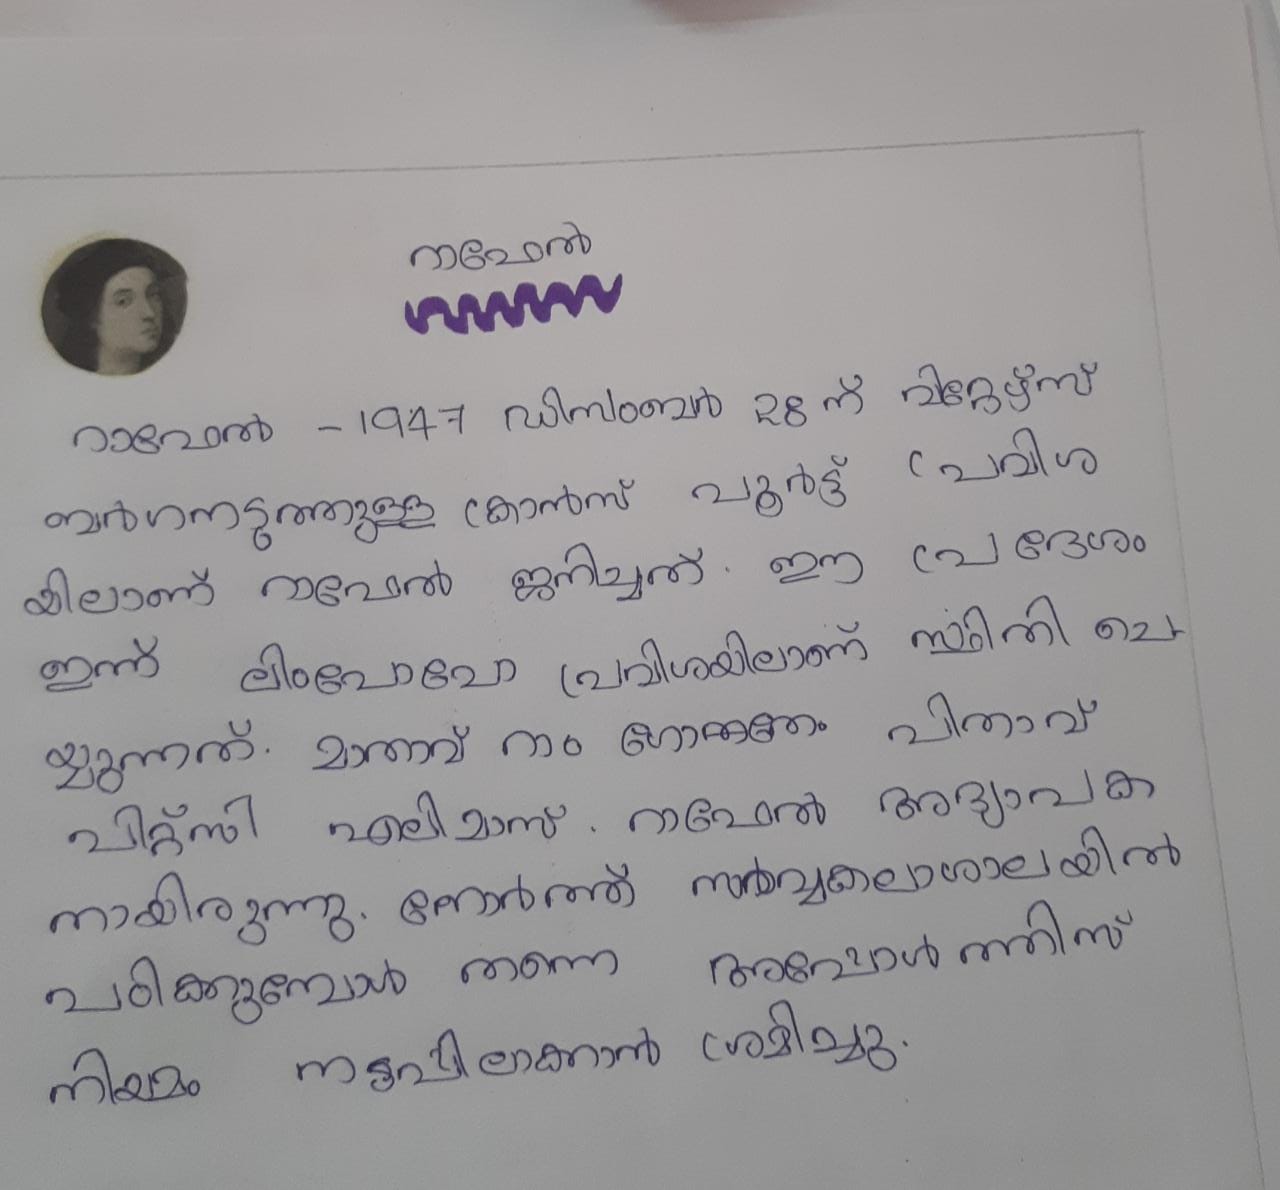 റാഫേൽ
റാഫേൽ - 1947 ഡിസംബർ 28 ന് പിറ്റേഴ്സ്
ബർഗനടുത്തുള്ള ക്രാൻസ് പൂർട്ട് പ്രവിശ
യിലാണ് റാഫേൽ ജനിച്ചത്. ഈ പ്രദേശം
ഇന്ന് ലിംപോപോ പ്രവിശയിലാണ് സ്ഥിതി ചെ
യ്യുന്നത്. മാതാവ് റാം പിതാവ്
പിറ്റ്സി ഏലിമാസ്. റാഫേൽ അദ്യാപക
നായിരുന്നു. നോർത്ത് സർവ്വകലാശാലയിൽ
പഠിക്കുമ്പോൾ തന്നെ അപ്പോൾത്തീസ്
നിയമം നടപ്പിലാക്കാൻ ശ്രമിച്ചു.